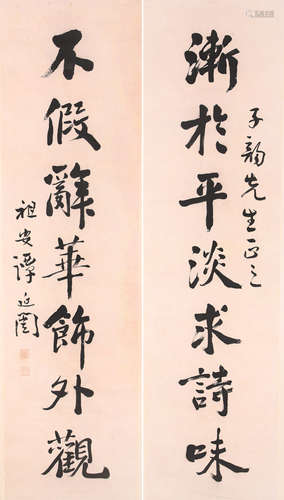 漸於平淡求詩味
子韵先生正之
不假辭華飾外觀
祖安譚延闓